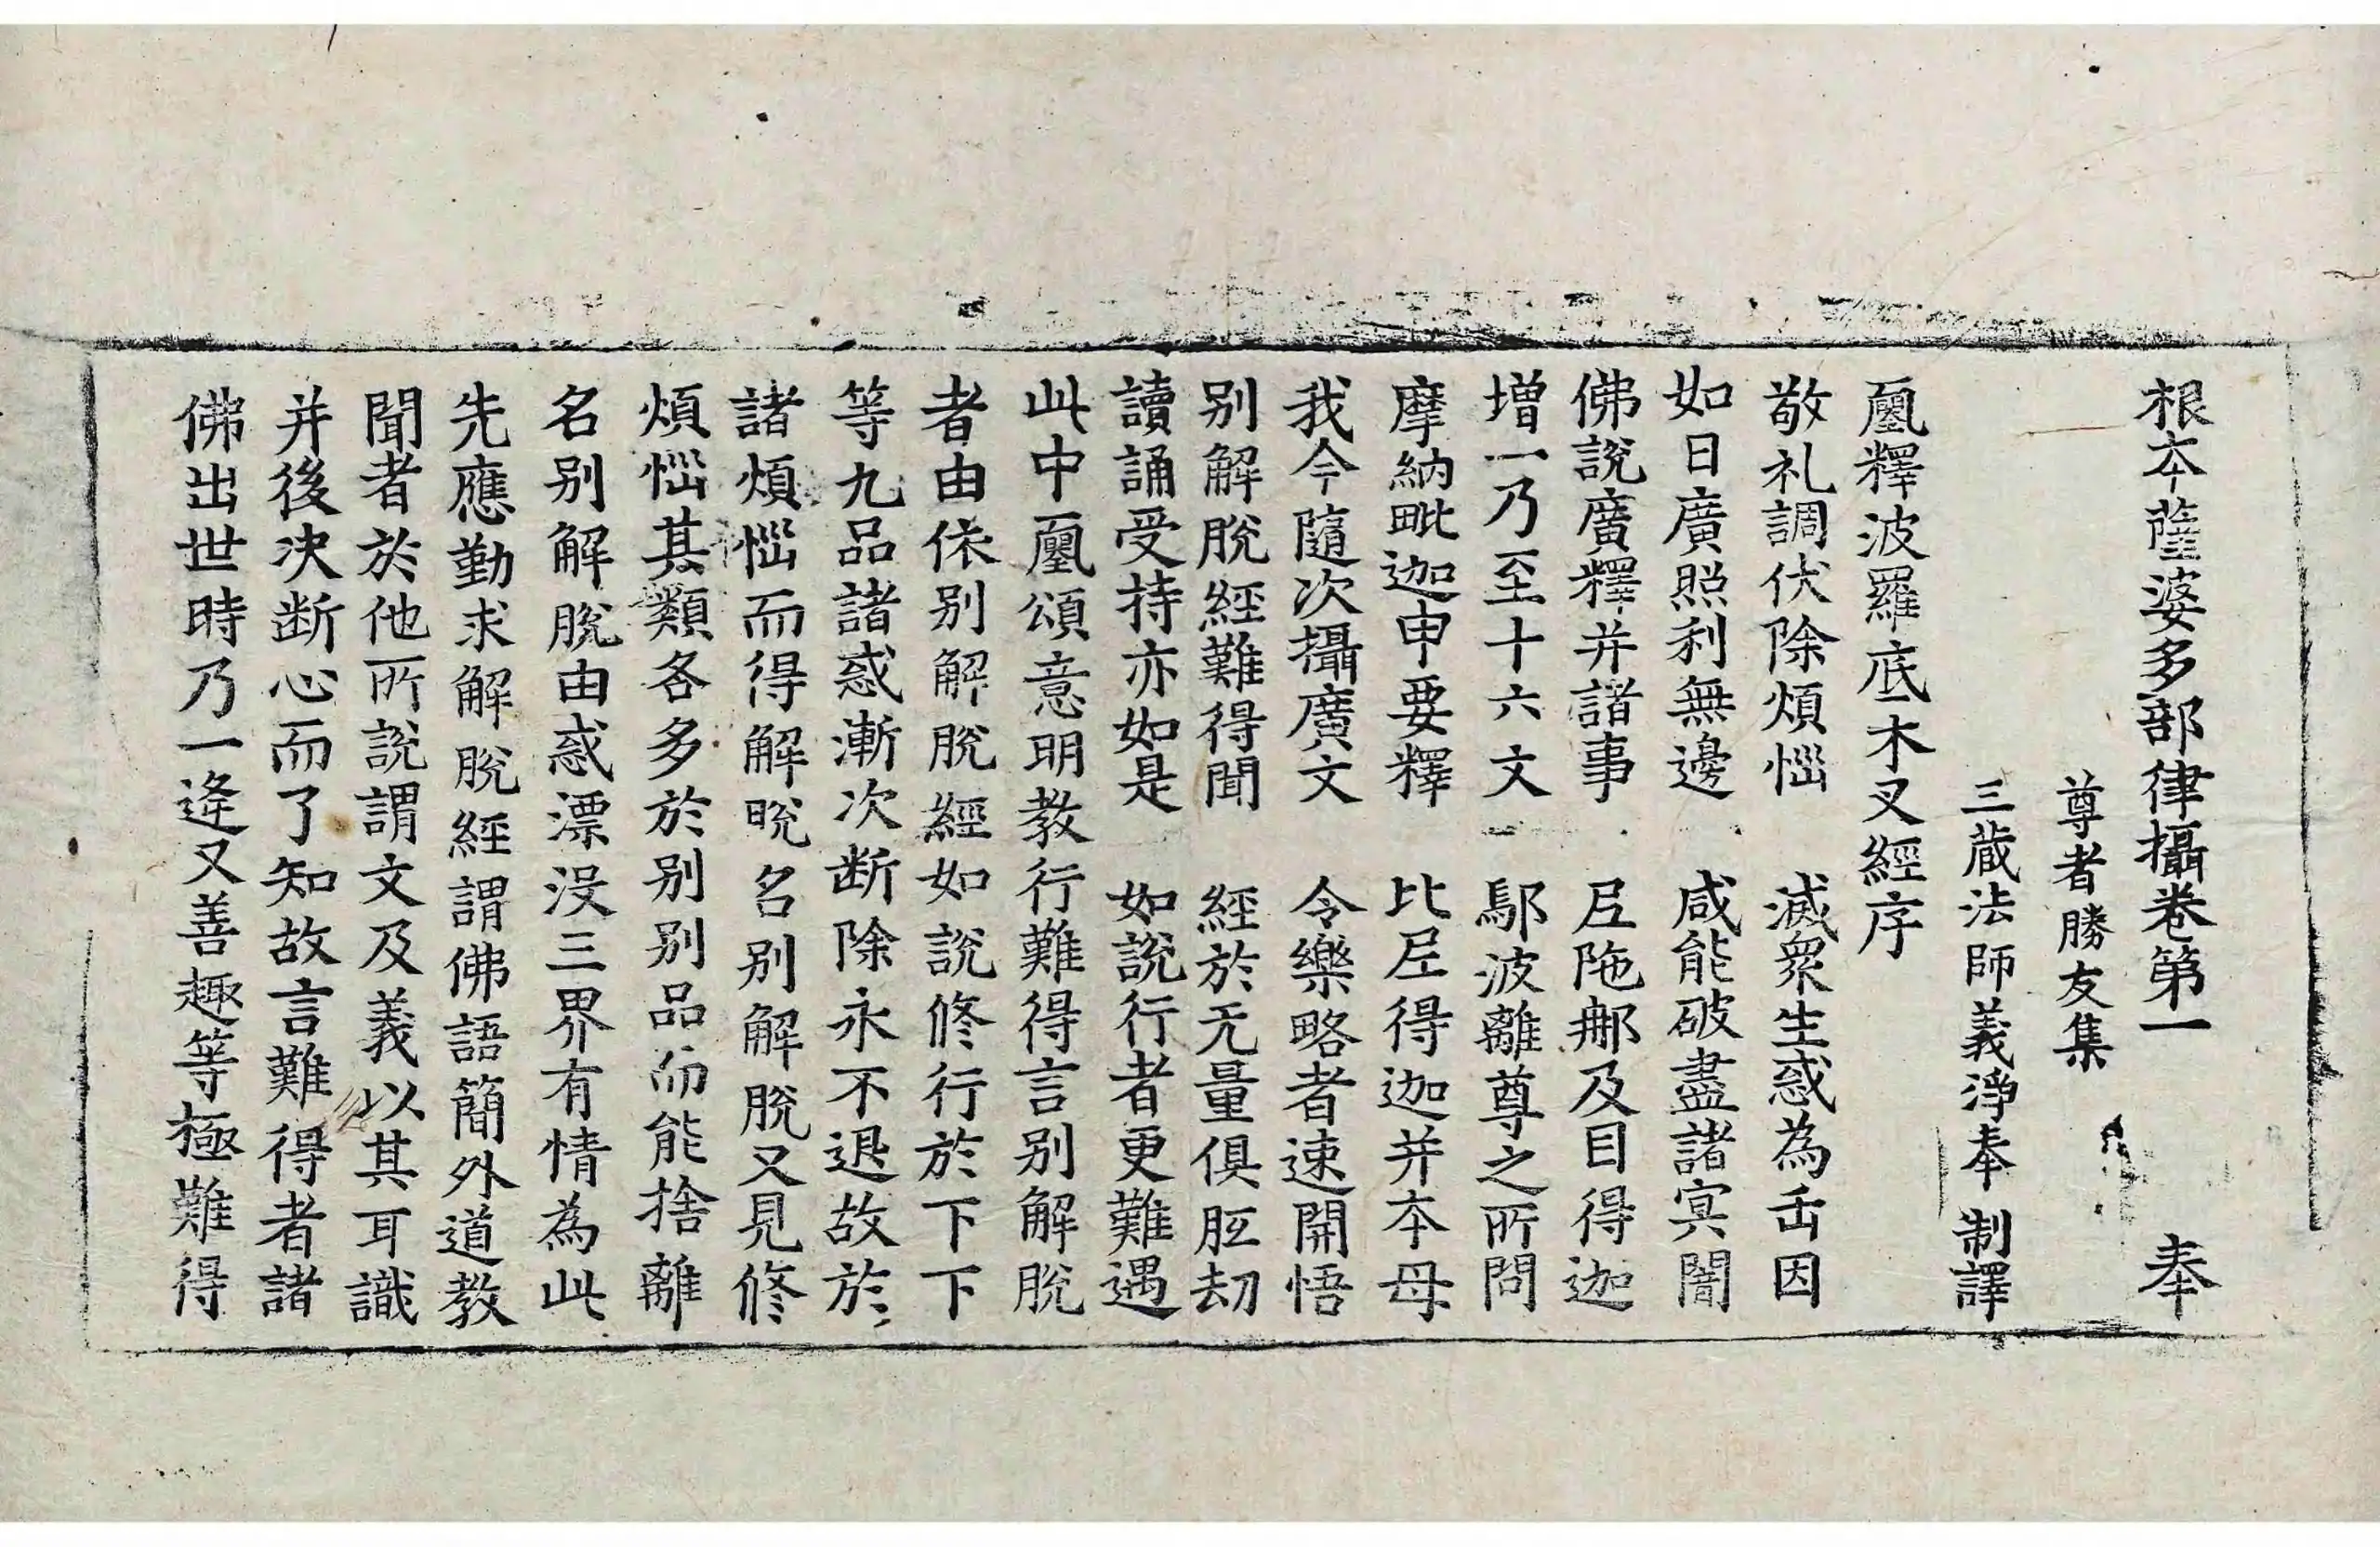 根本薩婆多部律攝卷第一 奉
尊者勝友集
三蔵法師義淨奉 制譯
𠃔釋波羅底木叉經序
敬礼調伏除煩惱 滅衆生惑為正因
如日廣照利無邊 咸能破盡諸冥闇
佛說廣釋并諸事 尼陁𨚗及目得迦
增一乃至十六文 鄔波離尊之所問
摩納毗迦申要釋 比尼得迦并本母
我今隨次攝廣文 令樂略者速開悟
别解脫經難得聞 經於无量俱胝劫
讀誦受持亦如是 如說行者更難遇
此中頌意明教行難得言别解脫
者由依别解脫經如說修行於下下
等九品諸惑漸次断除永不退故於
諸煩惱而得解脫名别解脫又見修
煩惱其類各多於别别品而能捨離
名别解脫由惑漂没三界有情為此
先應勤求解脫經謂佛語簡外道教
聞者於他所說謂文及義以其耳識
并後决断心而了知故言難得者諸
佛出世時乃一逢又善趣等極難得